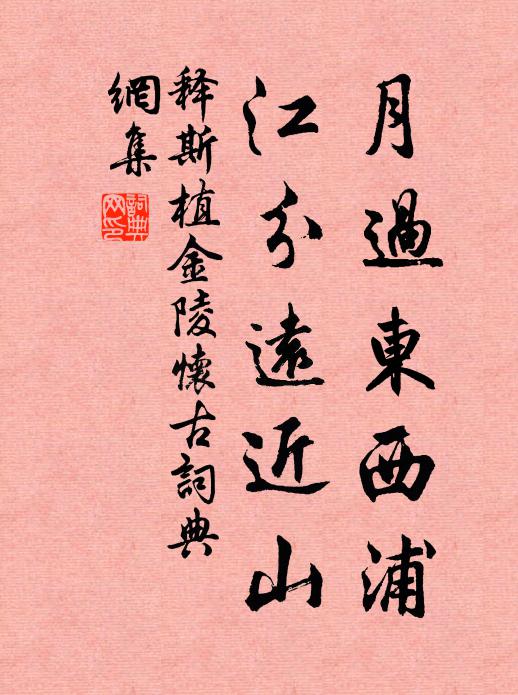 月過東西浦
江分遠近山
释斯植金陵懷古詞典
網集
詞典
网印